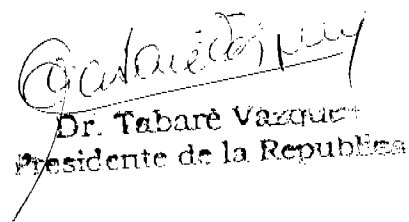 Dr. Tabaré Vazquez
Presidente de la Republica